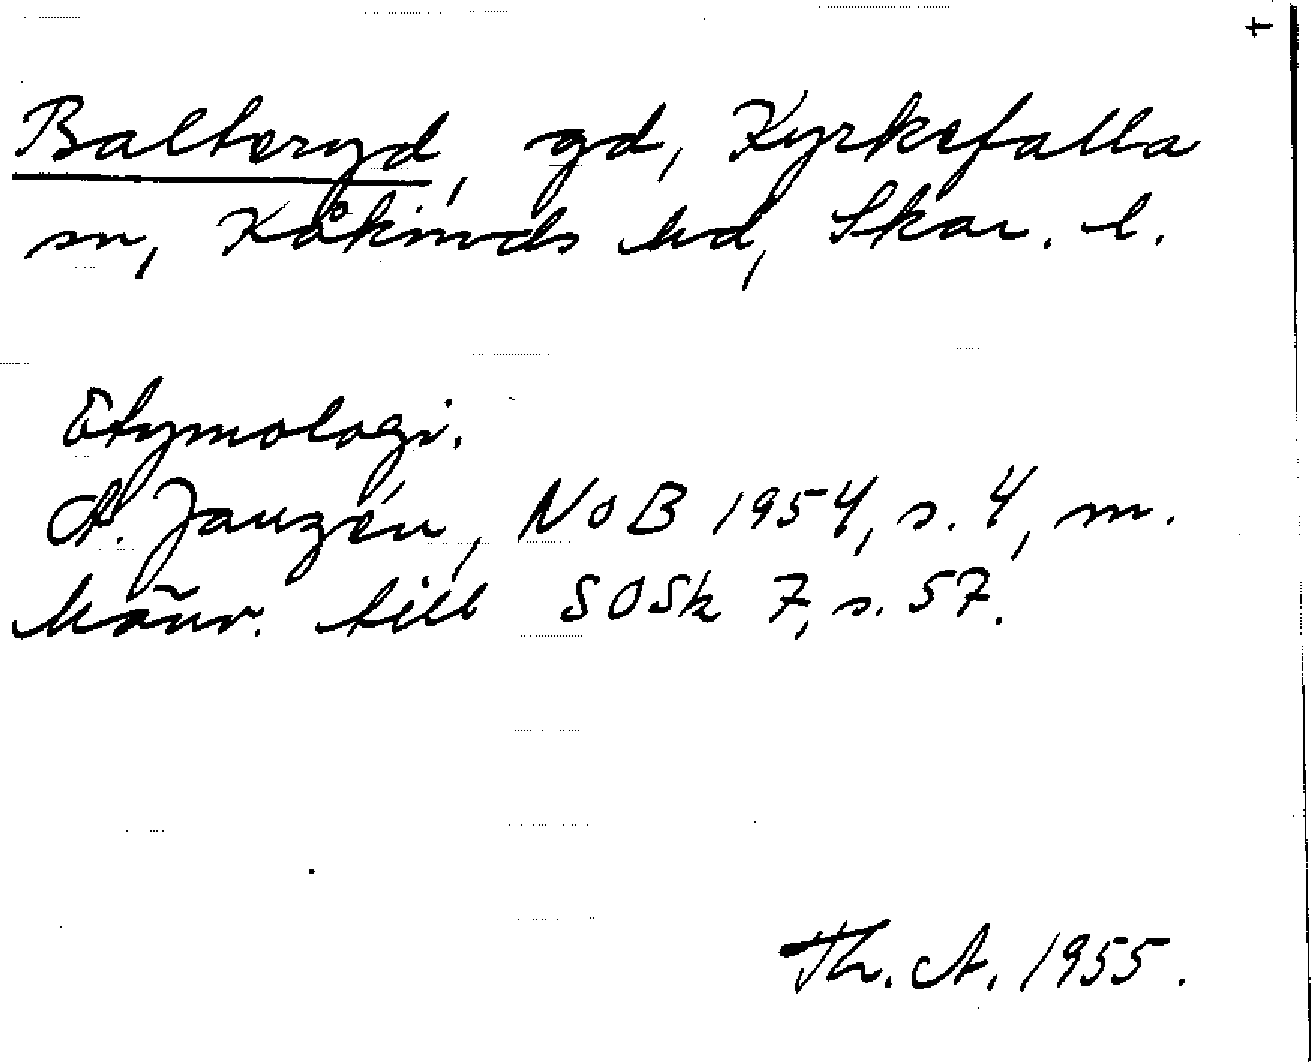 t
Balteryd, gd, Kyrkefalla
sn, Kåkinds hd, Skar. l.
Etymologi.
A. Janzén, NoB 1954, s. 4, m.
hänv. till SOSk 7, s. 57.
Th. A. 1955.